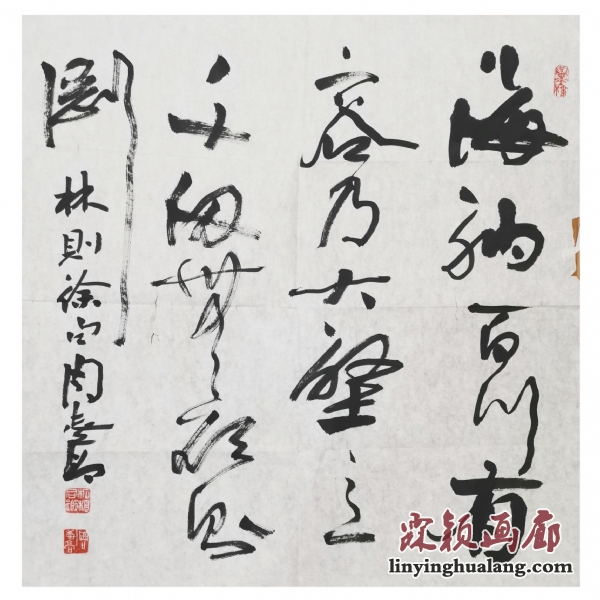 海納百川有
容乃大壁立
千仞無欲則
剛
林則徐句 周
颖画廊
linyinghualang.com